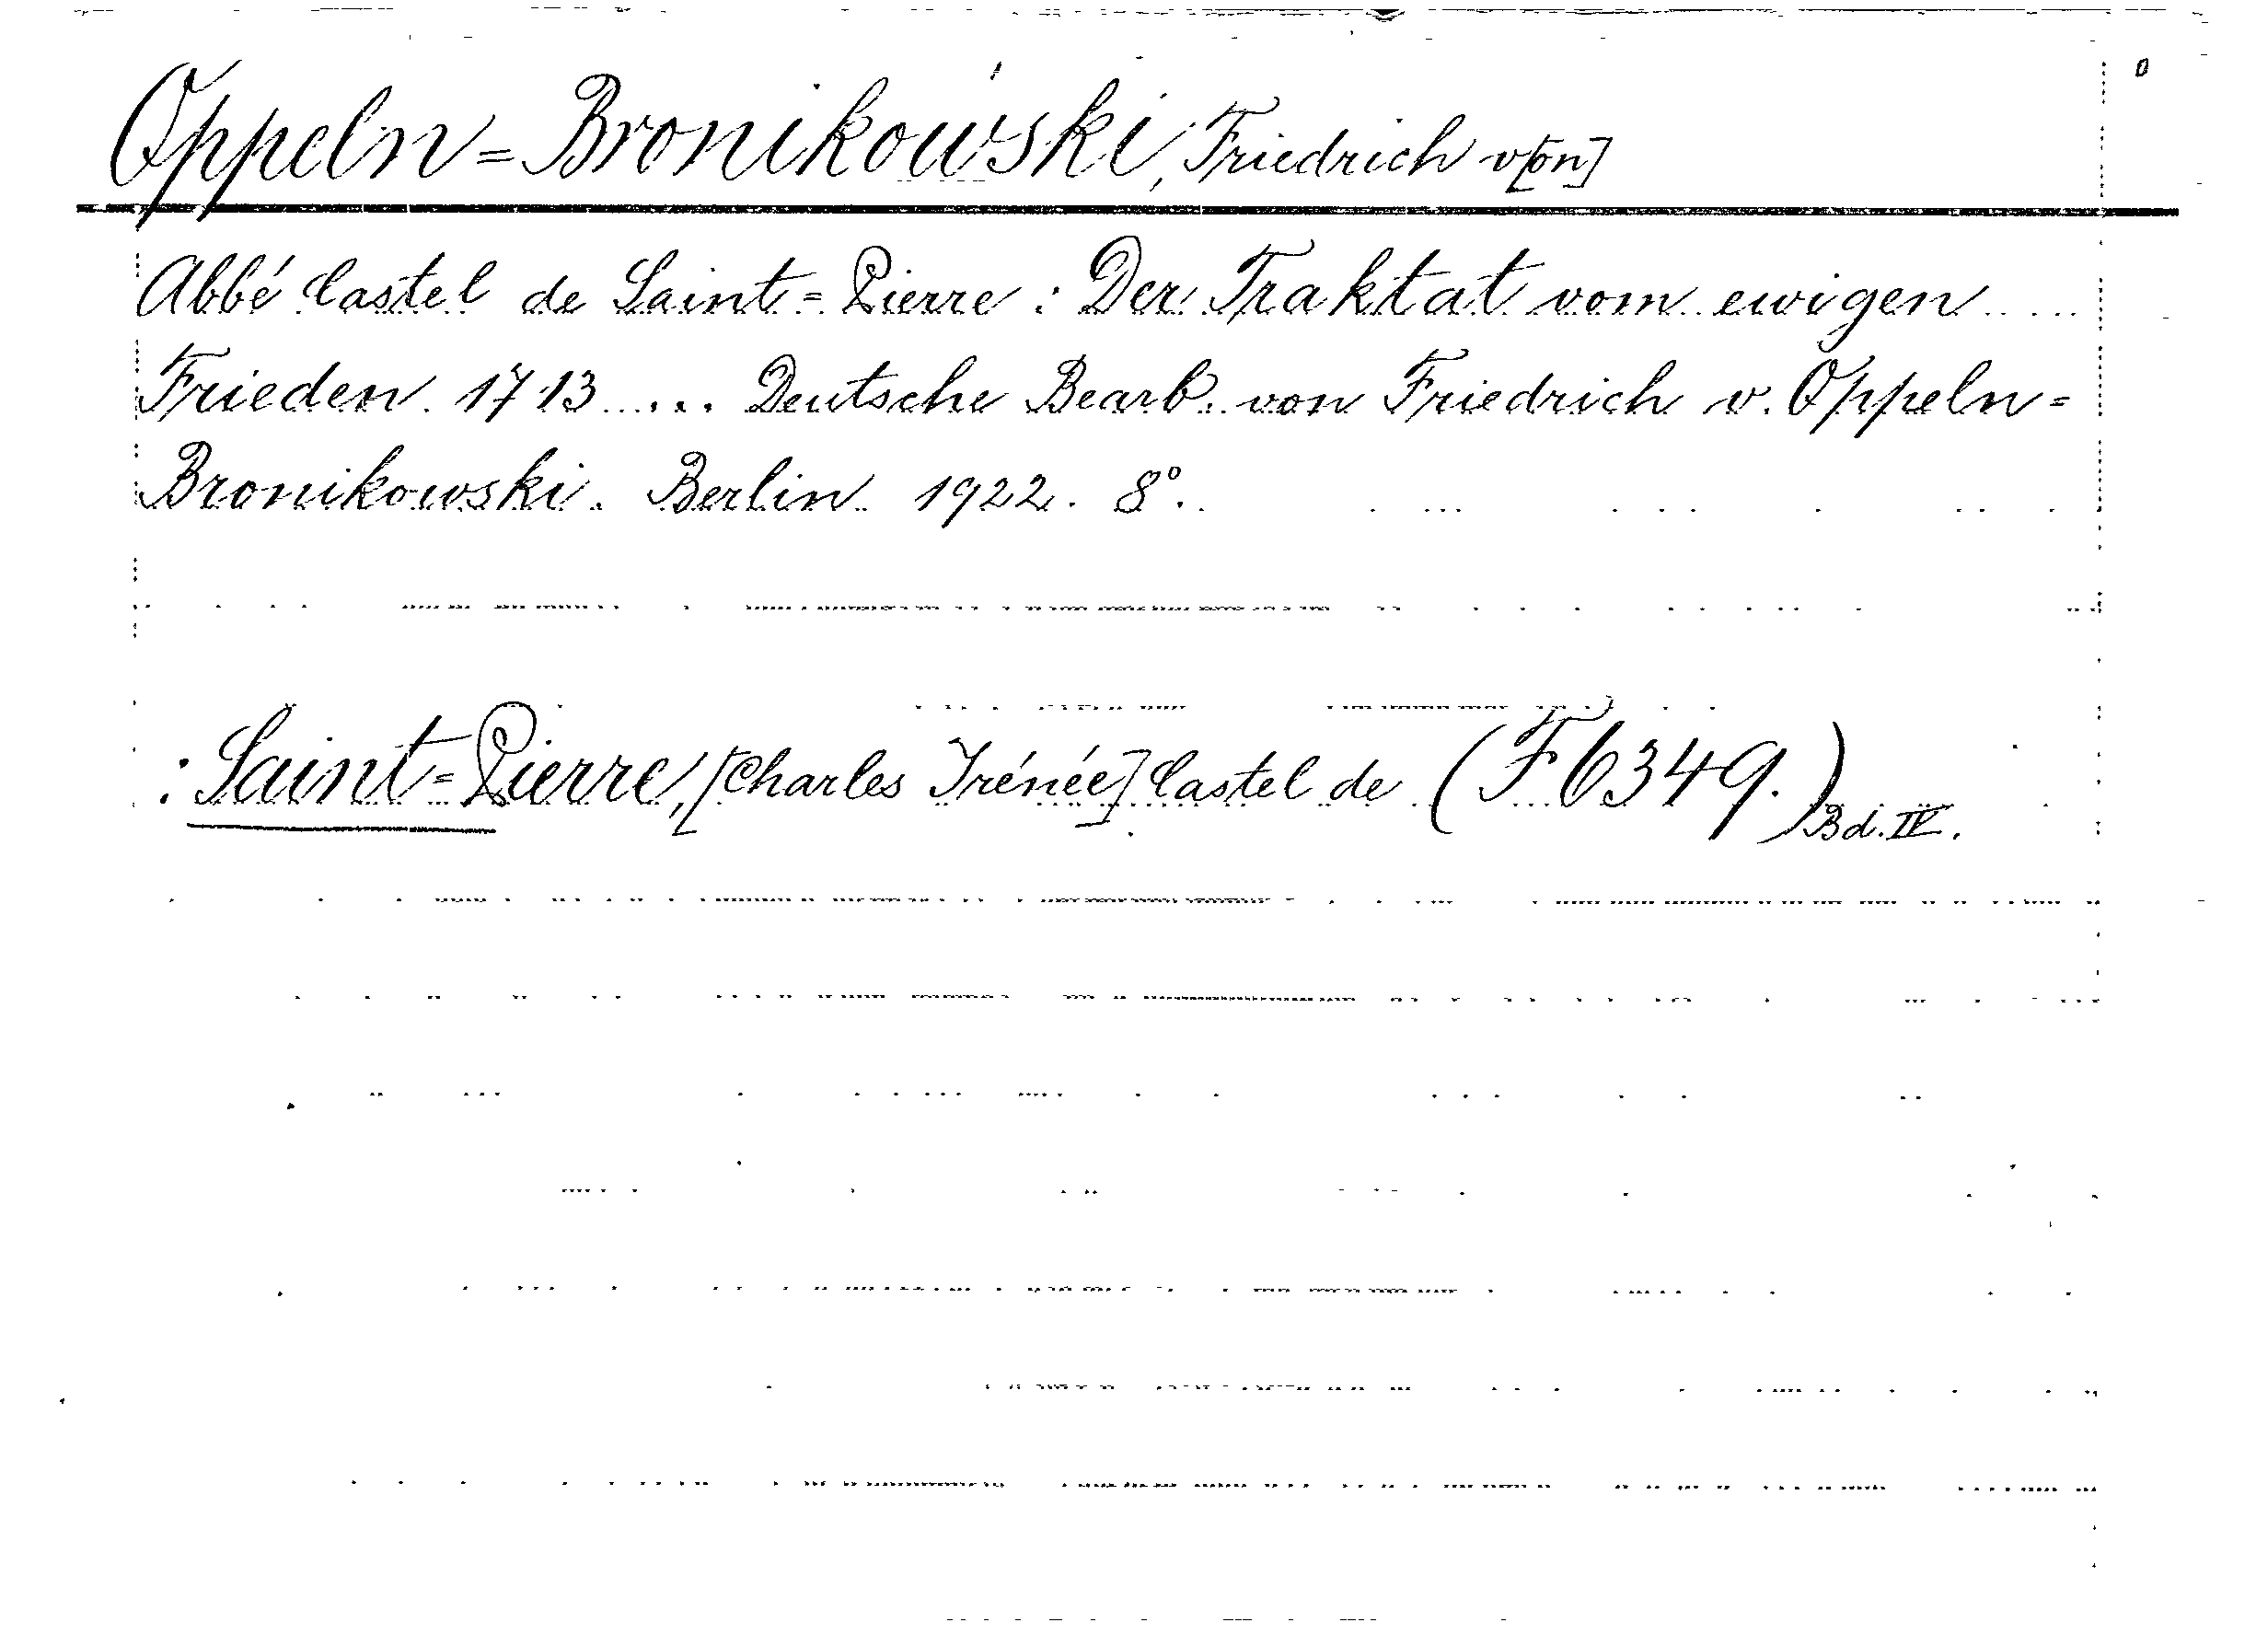 Oppeln=Bronikowski, Friedrich v[on]
Abbé Castel de Saint=Pierre : Der Traktat vom ewigen
Frieden. 1713 .... Deutsche Bearb. von Friedrich v. Oppeln=
Bronikowski. Berlin. 1922. 8°.
: Saint=Pierre, [Charles Irénée] Castel de (F 6349.) Bd. IV.